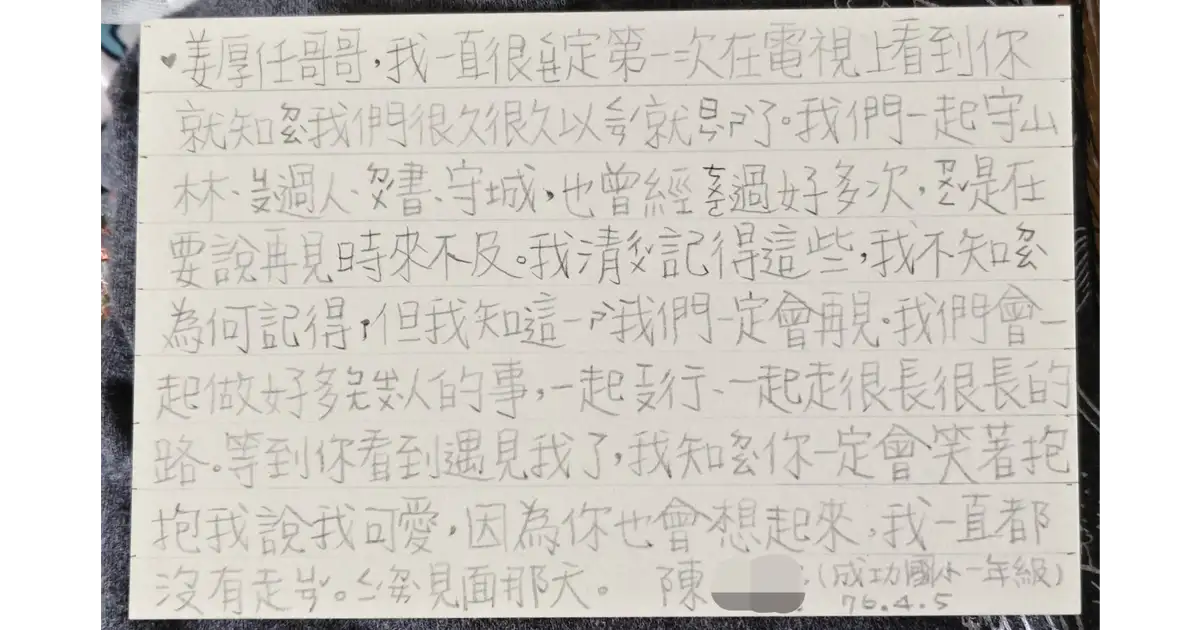 ♥姜厚任哥哥,我一直很定第一次在電視上看到你
就知我們很久很久以就了。我們一起守山
林、過人、書、守城,也曾經過好多次,是在
要說再見時來不及。我清記得這些,我不知
為何記得,但我知這一我們一定會再見。我們會一
起做好多人的事,一起行、一起走很長很長的
路。等到你看到遇見我了,我知你一定會笑著抱
抱我說我可愛,因為你也會想起來,我一直都
沒有走。見面那天。 陳 (成功國小一年級)
76.4.5